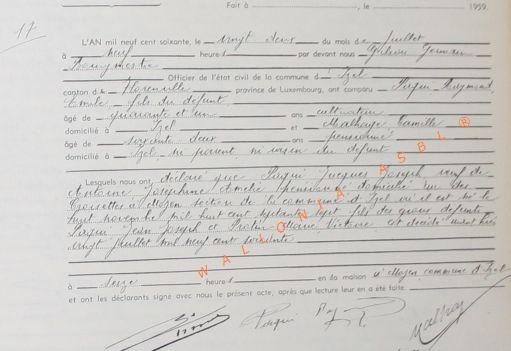 Fait à , le 1959.
17
L'AN mil neuf cent soixante, le vingt deux du mois de juillet
à neuf heures par devant nous Germain
Officier de l'état civil de la commune d' Izel
canton de Florenville province de Luxembourg, ont comparu Raymond,
Emile, fils du défunt,
âgé de quarante et un ans cultivateur
domicilié à Izel et Camille
âgé de soixante deux ans pensionné
domicilié à Izel, ni parent, ni voisin du défunt
Lesquels nous ont déclaré que Jacques Joseph, veuf de
Antoine Josephine Amelie pensionné domicilié rue des
à Moyen section de la commune d'Izel où il est né le
huit novembre mil huit cent septante sept fils des époux défunts
Jean Joseph et Marie Victoire est décédé
vingt juillet mil neuf cent soixante
à seize heures en sa maison à Moyen commune d'Izel
et ont les déclarants signé avec nous le présent acte, après que lecture leur en a été faite.
WALLONIA ASBL ®